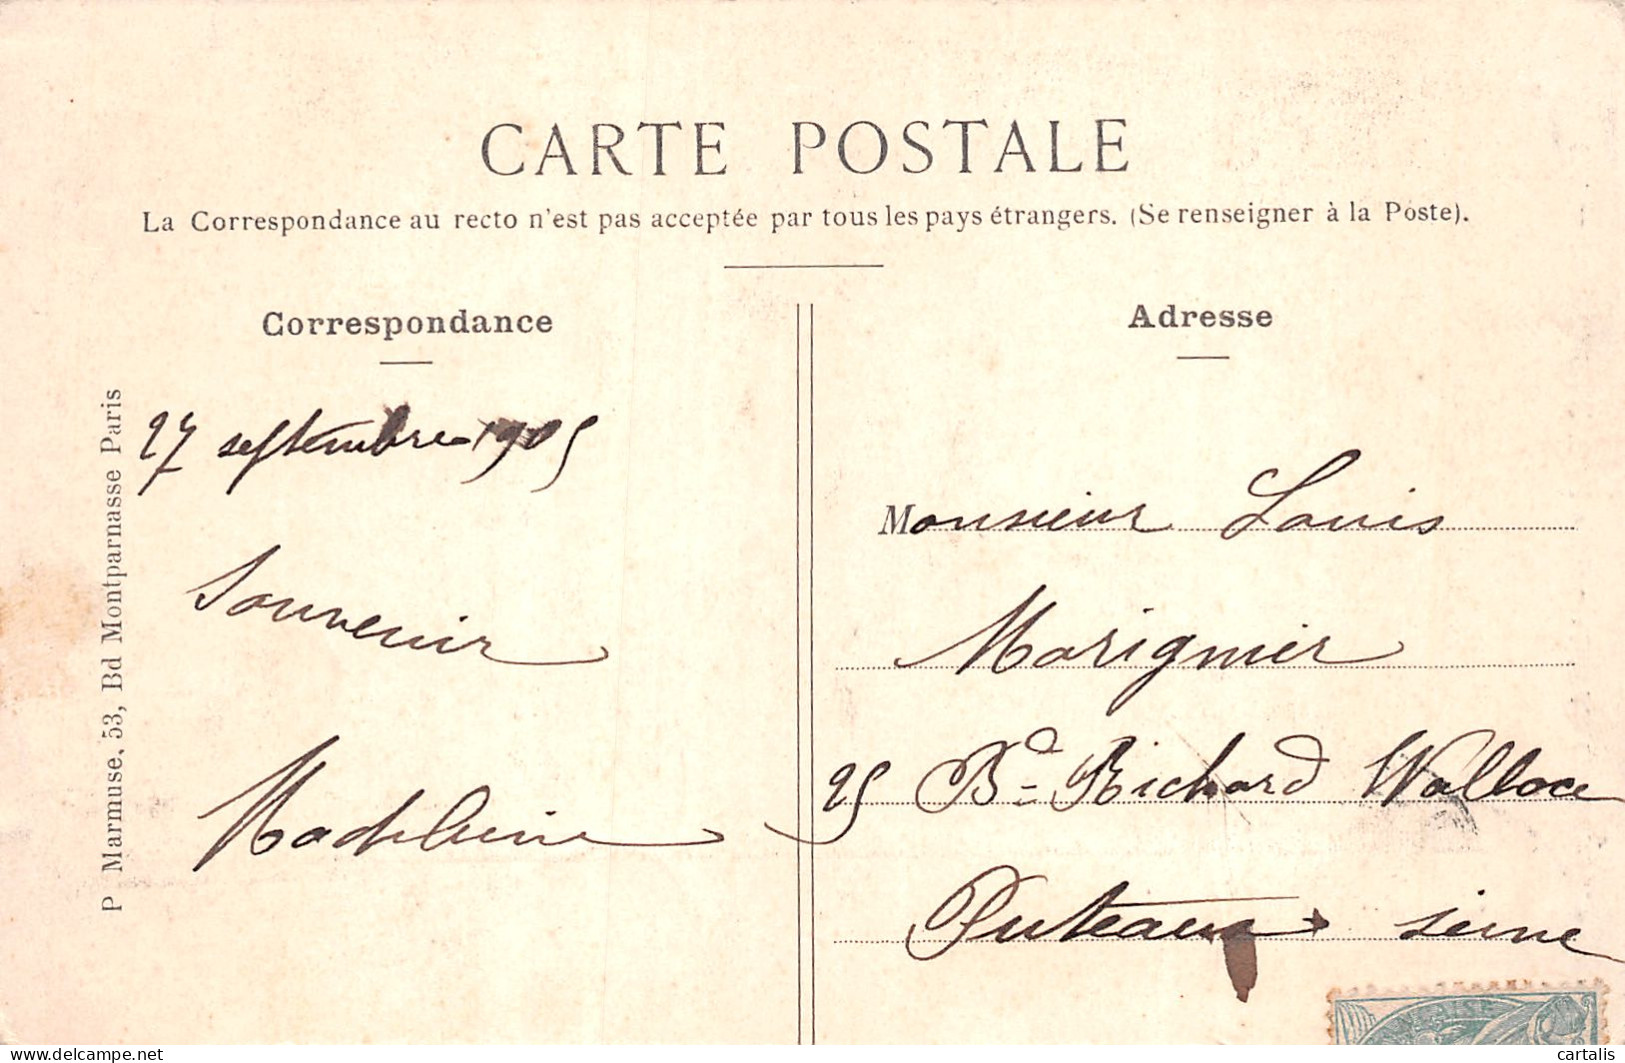 CARTE POSTALE
La Correspondance au recto n'est pas acceptée par tous les pays étrangers. (Se renseigner à la Poste).
Correspondance
27 septembre 1905
Souvenir
Madeleine
P Marmuse. 53, Bd Montparnasse Paris
Adresse
Monsieur Louis
Morignier
25 Bd Richard Wallace
Puteaux seine
delcampe.net
cartalis